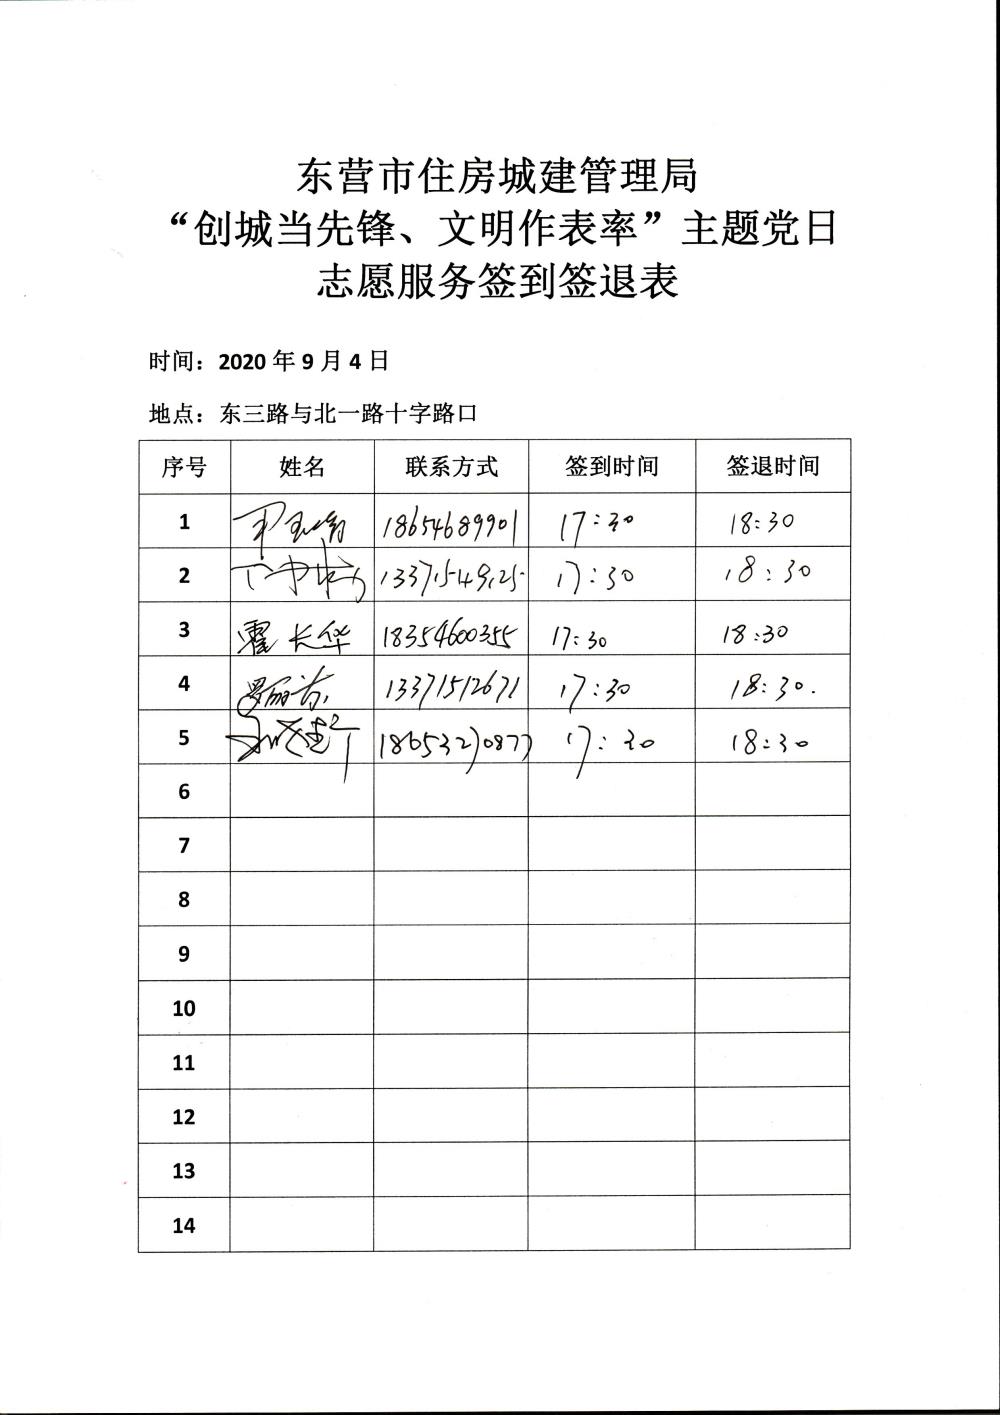 东营市住房城建管理局
“创城当先锋、文明作表率”主题党日
志愿服务签到签退表
时间：2020 年 9 月 4 日
地点：东三路与北一路十字路口
序号 姓名 联系方式 签到时间 签退时间
1 18654689901 17:30 18:30
2 13371549125 17:30 18:30
3 霍长华 18354600355 17:30 18:30
4 13371512671 17:30 18:30.
5 18653270877 17:30 18:30
6
7
8
9
10
11
12
13
14